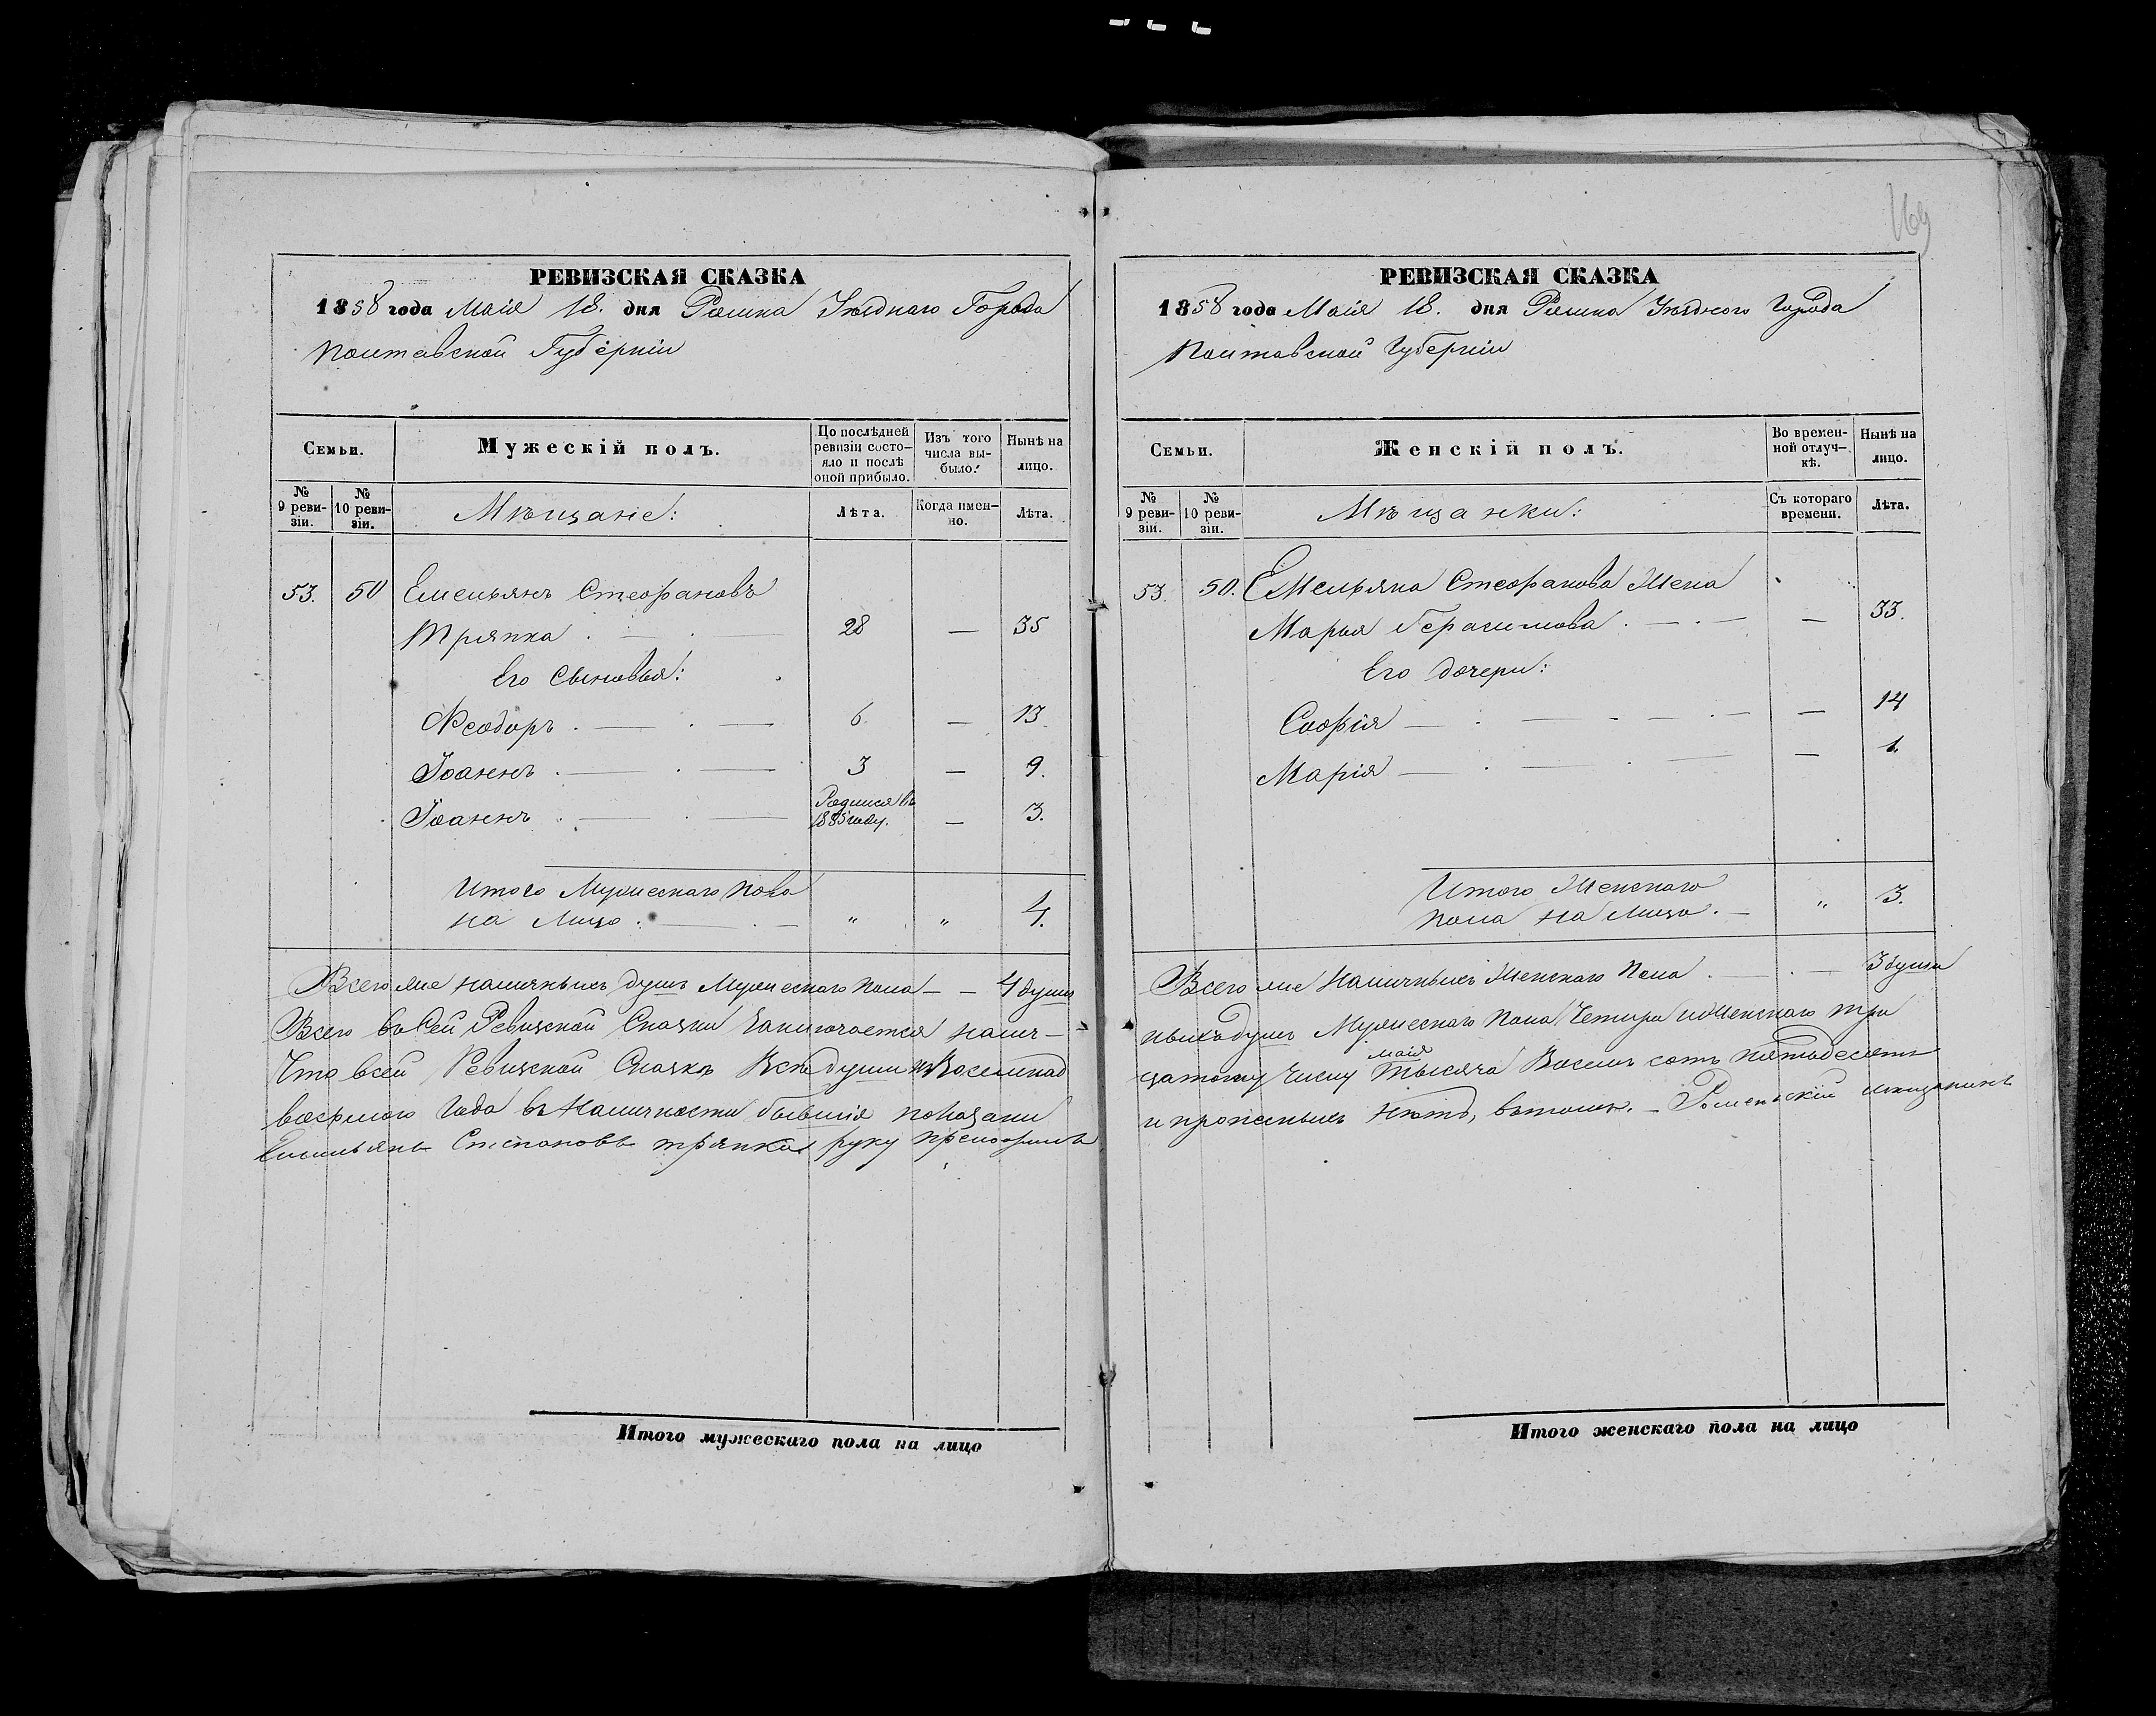 РЕВИЗСКАЯ СКАЗКА
1858 года Маія 18. дня Ромна Уѣзднаго Города
Полтавской Губерніи
Семьи.
Мужескій полъ.
По послѣдней ревизіи состояло и послѣ оной прибыло.
Изъ того числа выбыло.
Нынѣ на лицо.
№ 9 ревизіи.
№ 10 ревизіи.
Мѣщане:
Лѣта.
Когда именно.
Лѣта.
53. 50 Емельянъ Стефановъ
Тряпка . — . 28 — 35
Его Сыновья:
Феодоръ . — . — 6 — 13
Іоаннъ . — . — 3 — 9.
Іоаннъ . — . — Родился въ 1855 году. — 3.
Итого Мужескаго пола
на Лицо . — . — " " 4.
Всего же наличныхъ душъ Мужескаго Пола — — 4 души
Всего въ Сей Ревизской Сказки Заключается налич-
Что всей Ревизской Сказкѣ Всѣ души къ Восемнад
восьмого Года въ Наличности бывшія показаны
Емельянъ Степановъ тряпка руку приложилъ
Итого мужескаго пола на лицо
169
РЕВИЗСКАЯ СКАЗКА
1858 года Маія 18. дня Ромна Уѣздного Города
Полтавской Губерніи
Семьи.
Женскій полъ.
Во временной отлучкѣ.
Нынѣ на лицо.
№ 9 ревизіи.
№ 10 ревизіи.
Мѣщанки:
Съ котораго времени.
Лѣта.
53. 50. Емельяна Стефанова Жена
Марья Герасимова . — . — — 33.
Его дочери:
Софія — . — . — . — — 14
Марія — . — . — — 1.
Итого Женскаго
пола на лицо. — " 3.
Всего же Наличныхъ Женскаго Пола . — . — 3 души
ныхъ душъ Мужескаго Пола Четыри и Женскаго три
цатому Числу маія Тысяча Восемь сотъ пятьдесятъ
и пропсныхъ нѣтъ, вътомъ. — Роменьскій мѣщанинъ
Итого женскаго пола на лицо